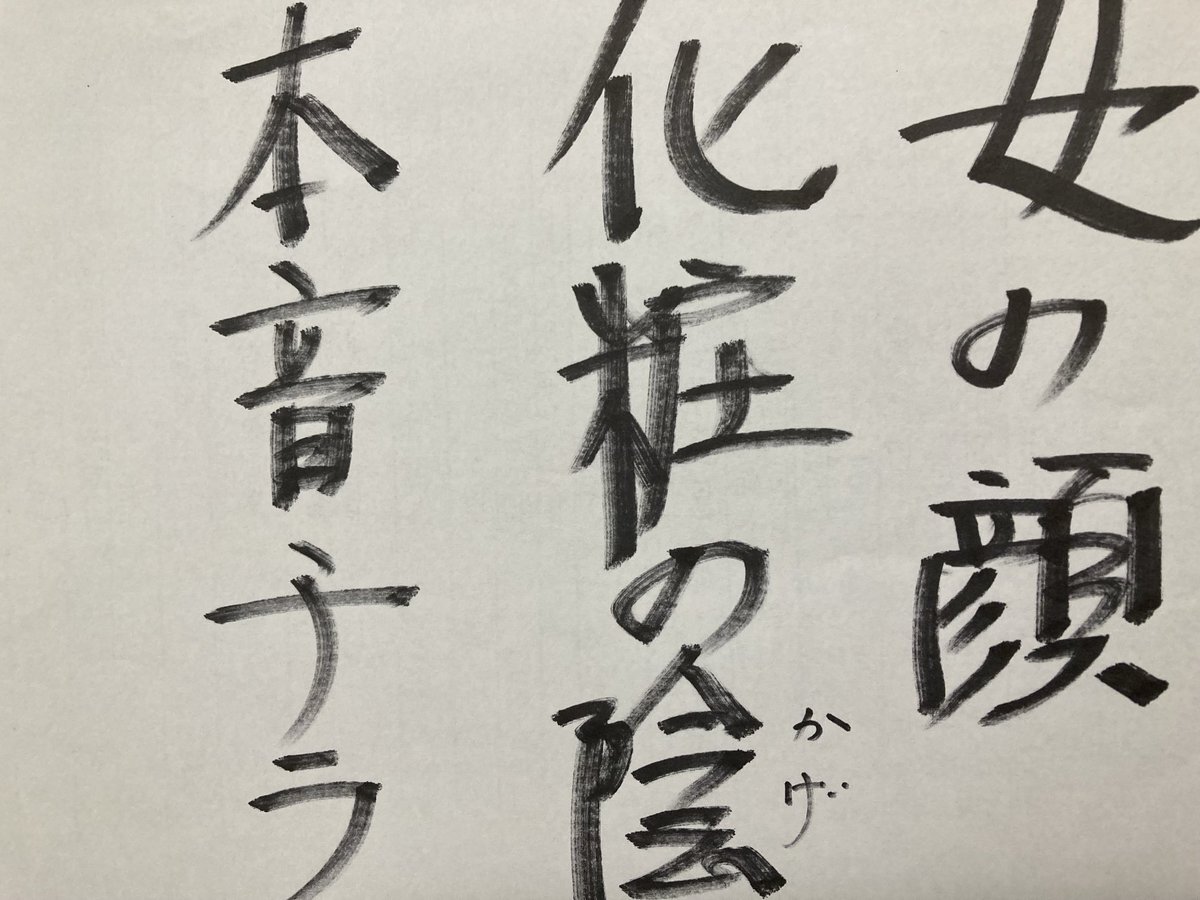 女の顔
化粧の陰
かげ
本音チラ